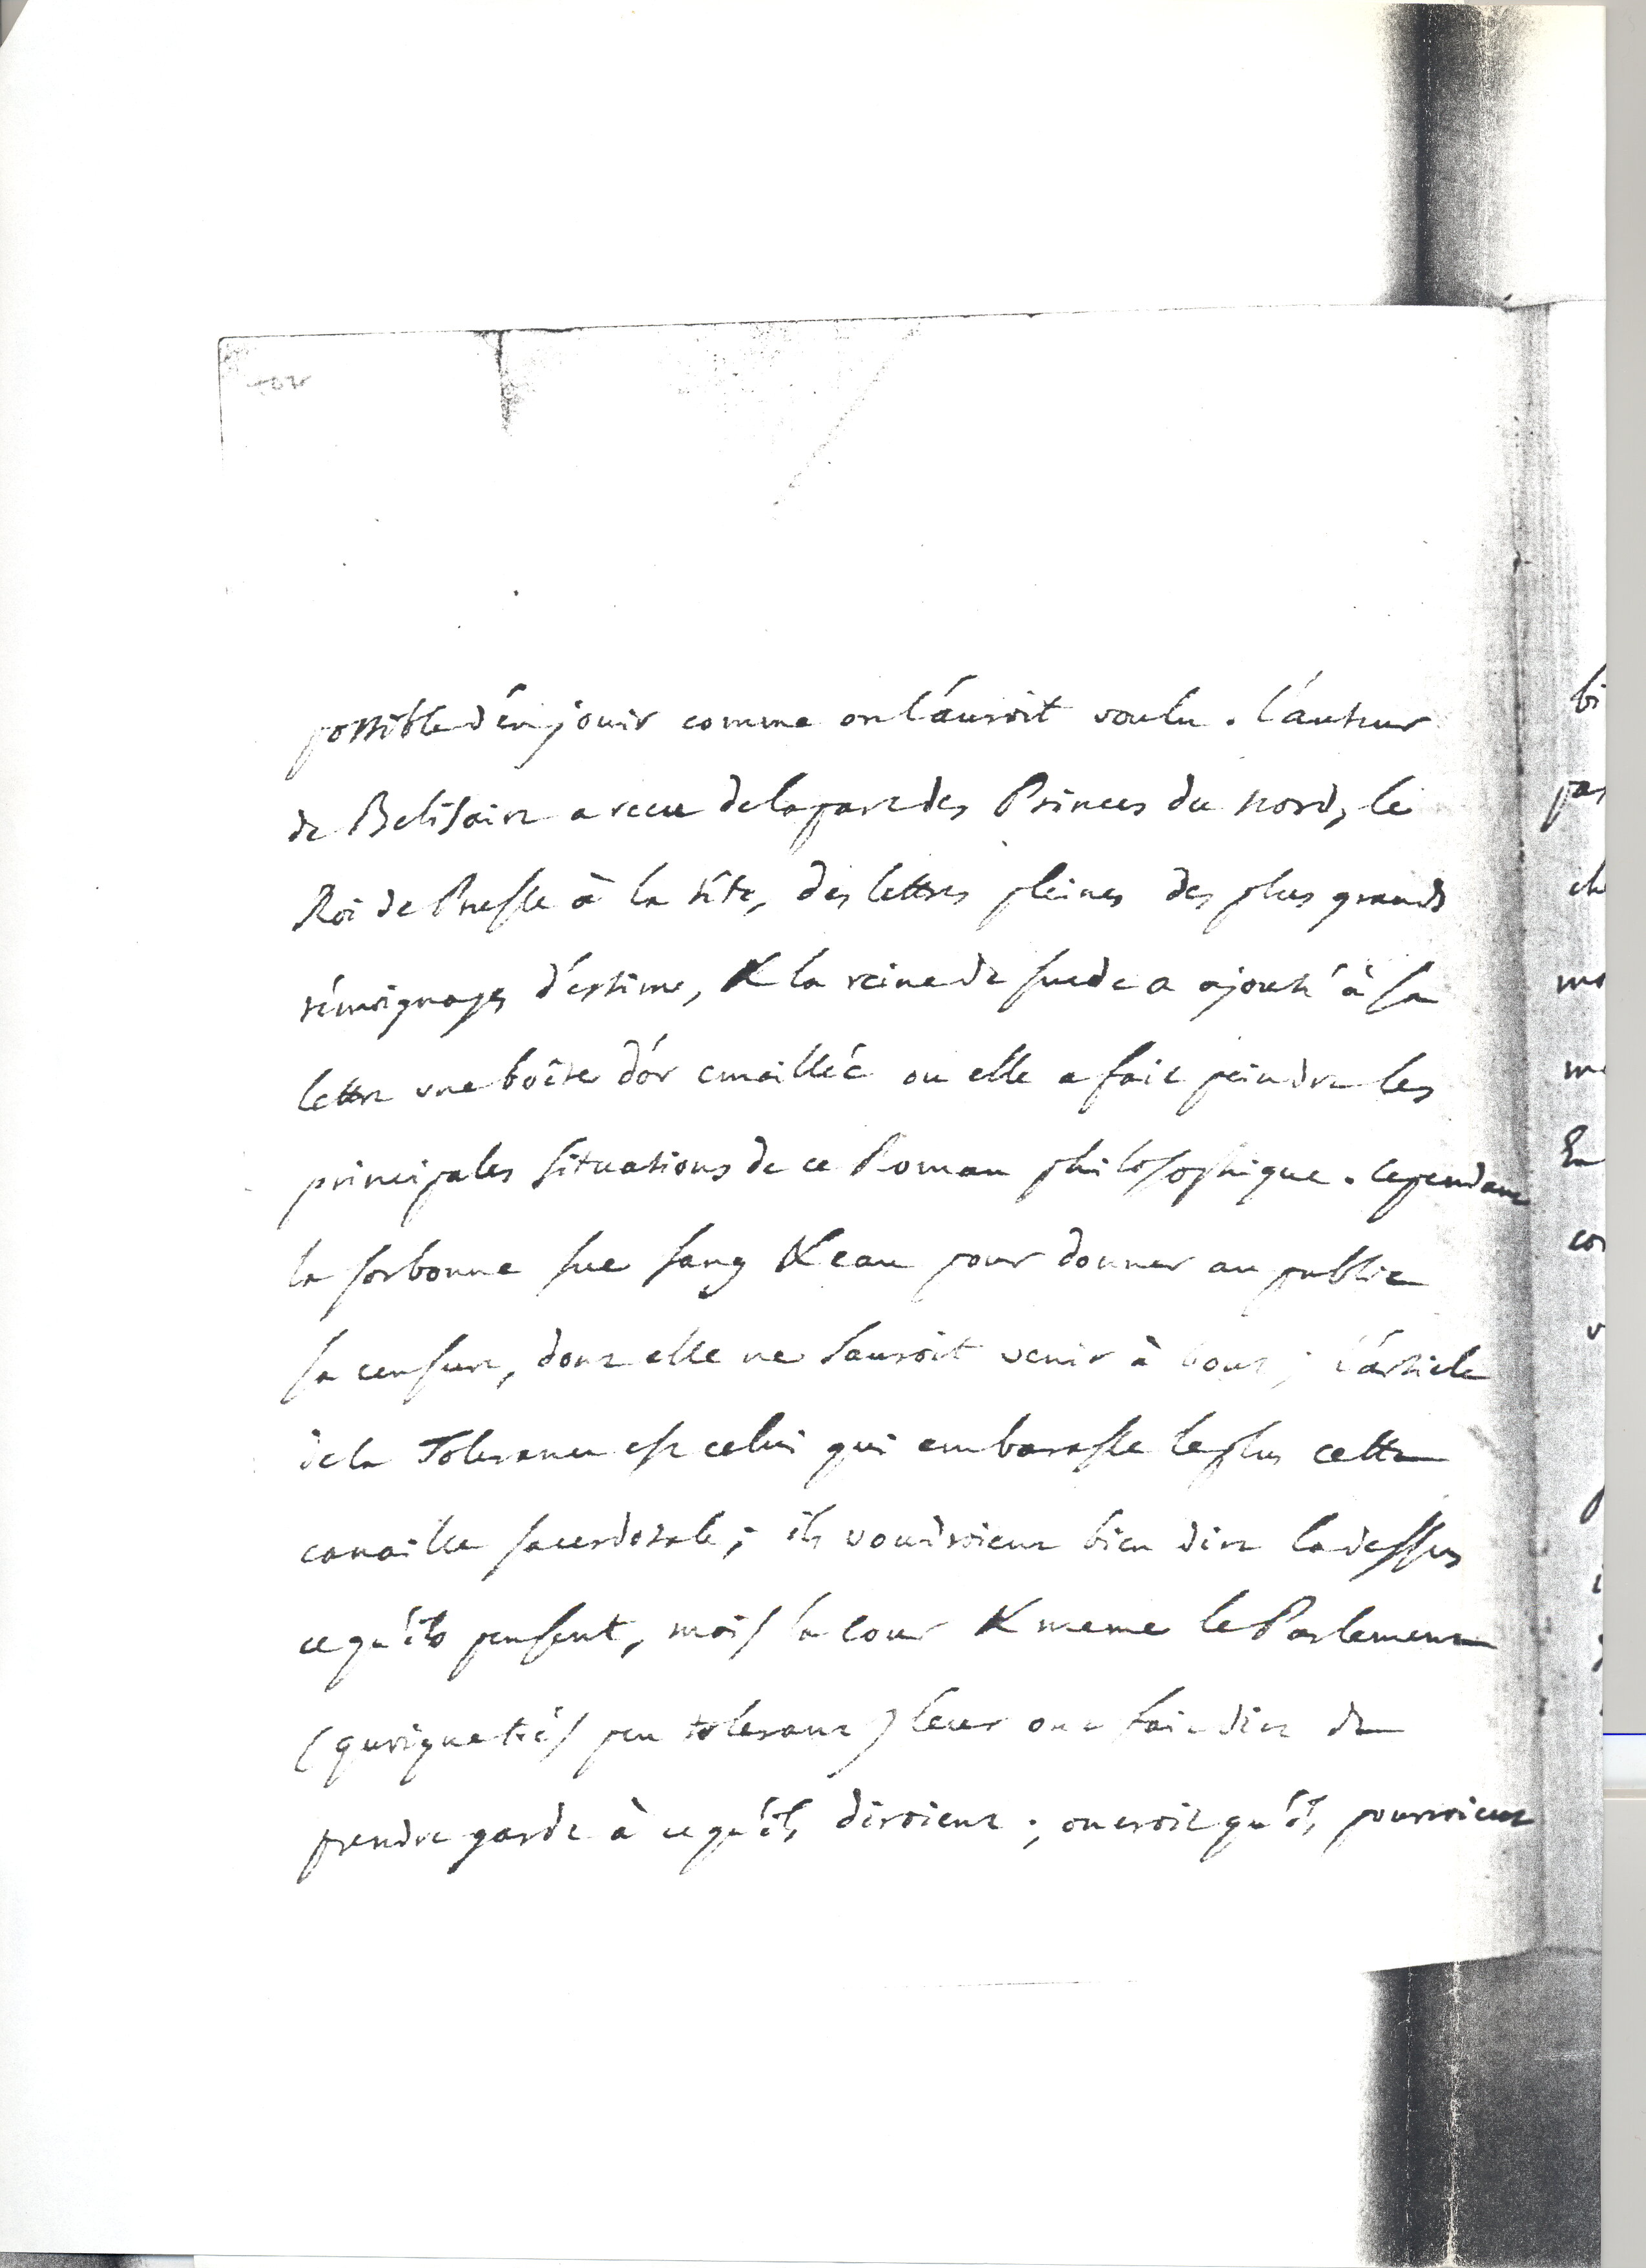 possible d'en jouir comme on l'auroit voulu. l'auteur
de Belisaire a recu de la part des Princes du nord, le
Roi de Prusse à la tête, des lettres pleines des plus grands
témoignages d'estime, & la reine de suede a ajouté à sa
lettre une boëte d'or emaillée ou elle a fait peindre les
principales situations de ce Roman philosophique. cependant
la sorbonne sue sang & eau pour donner au public
sa censure, dont elle ne sauroit venir à bout; l'article
de la Tolerance est celui qui embarasse le plus cette
canaille sacerdotale; ils voudroient bien dire la dessus
ce qu'ils pensent, mais la cour & meme le Parlement
(quoique très peu tolerant) leur ont fait dire de
prendre garde à ce qu'ils diroient; on croit qu'ils pourroient
bi
pas
ch
mo
me
En
co